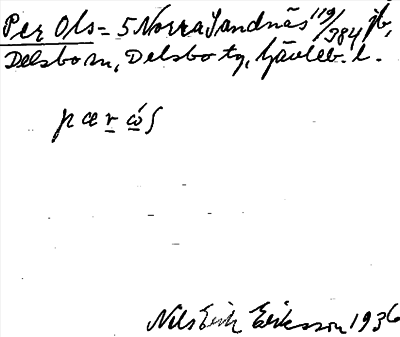 Per Ols = 5 Norra Sandnäs 119/384 jb,
Delsbo sn, Delsbo tg, Gävleb. l.
pærωʃ
Nils Erik Eriksson 1936